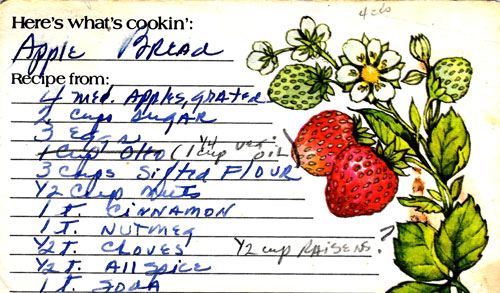 4 cks
Here's what's cookin':
Apple Bread
Recipe from:
4 med. Apples, grated
2 cups sugar
3 eggs
1 cup Oleo (1 1/4 cup veg. oil)
3 cups Sifted Flour
1/2 cup nuts
1 t. Cinnamon
1 t. Nutmeg
1/2 t. Cloves 1/2 cup Raisens ?
1/2 t. All Spice
1 t. Soda